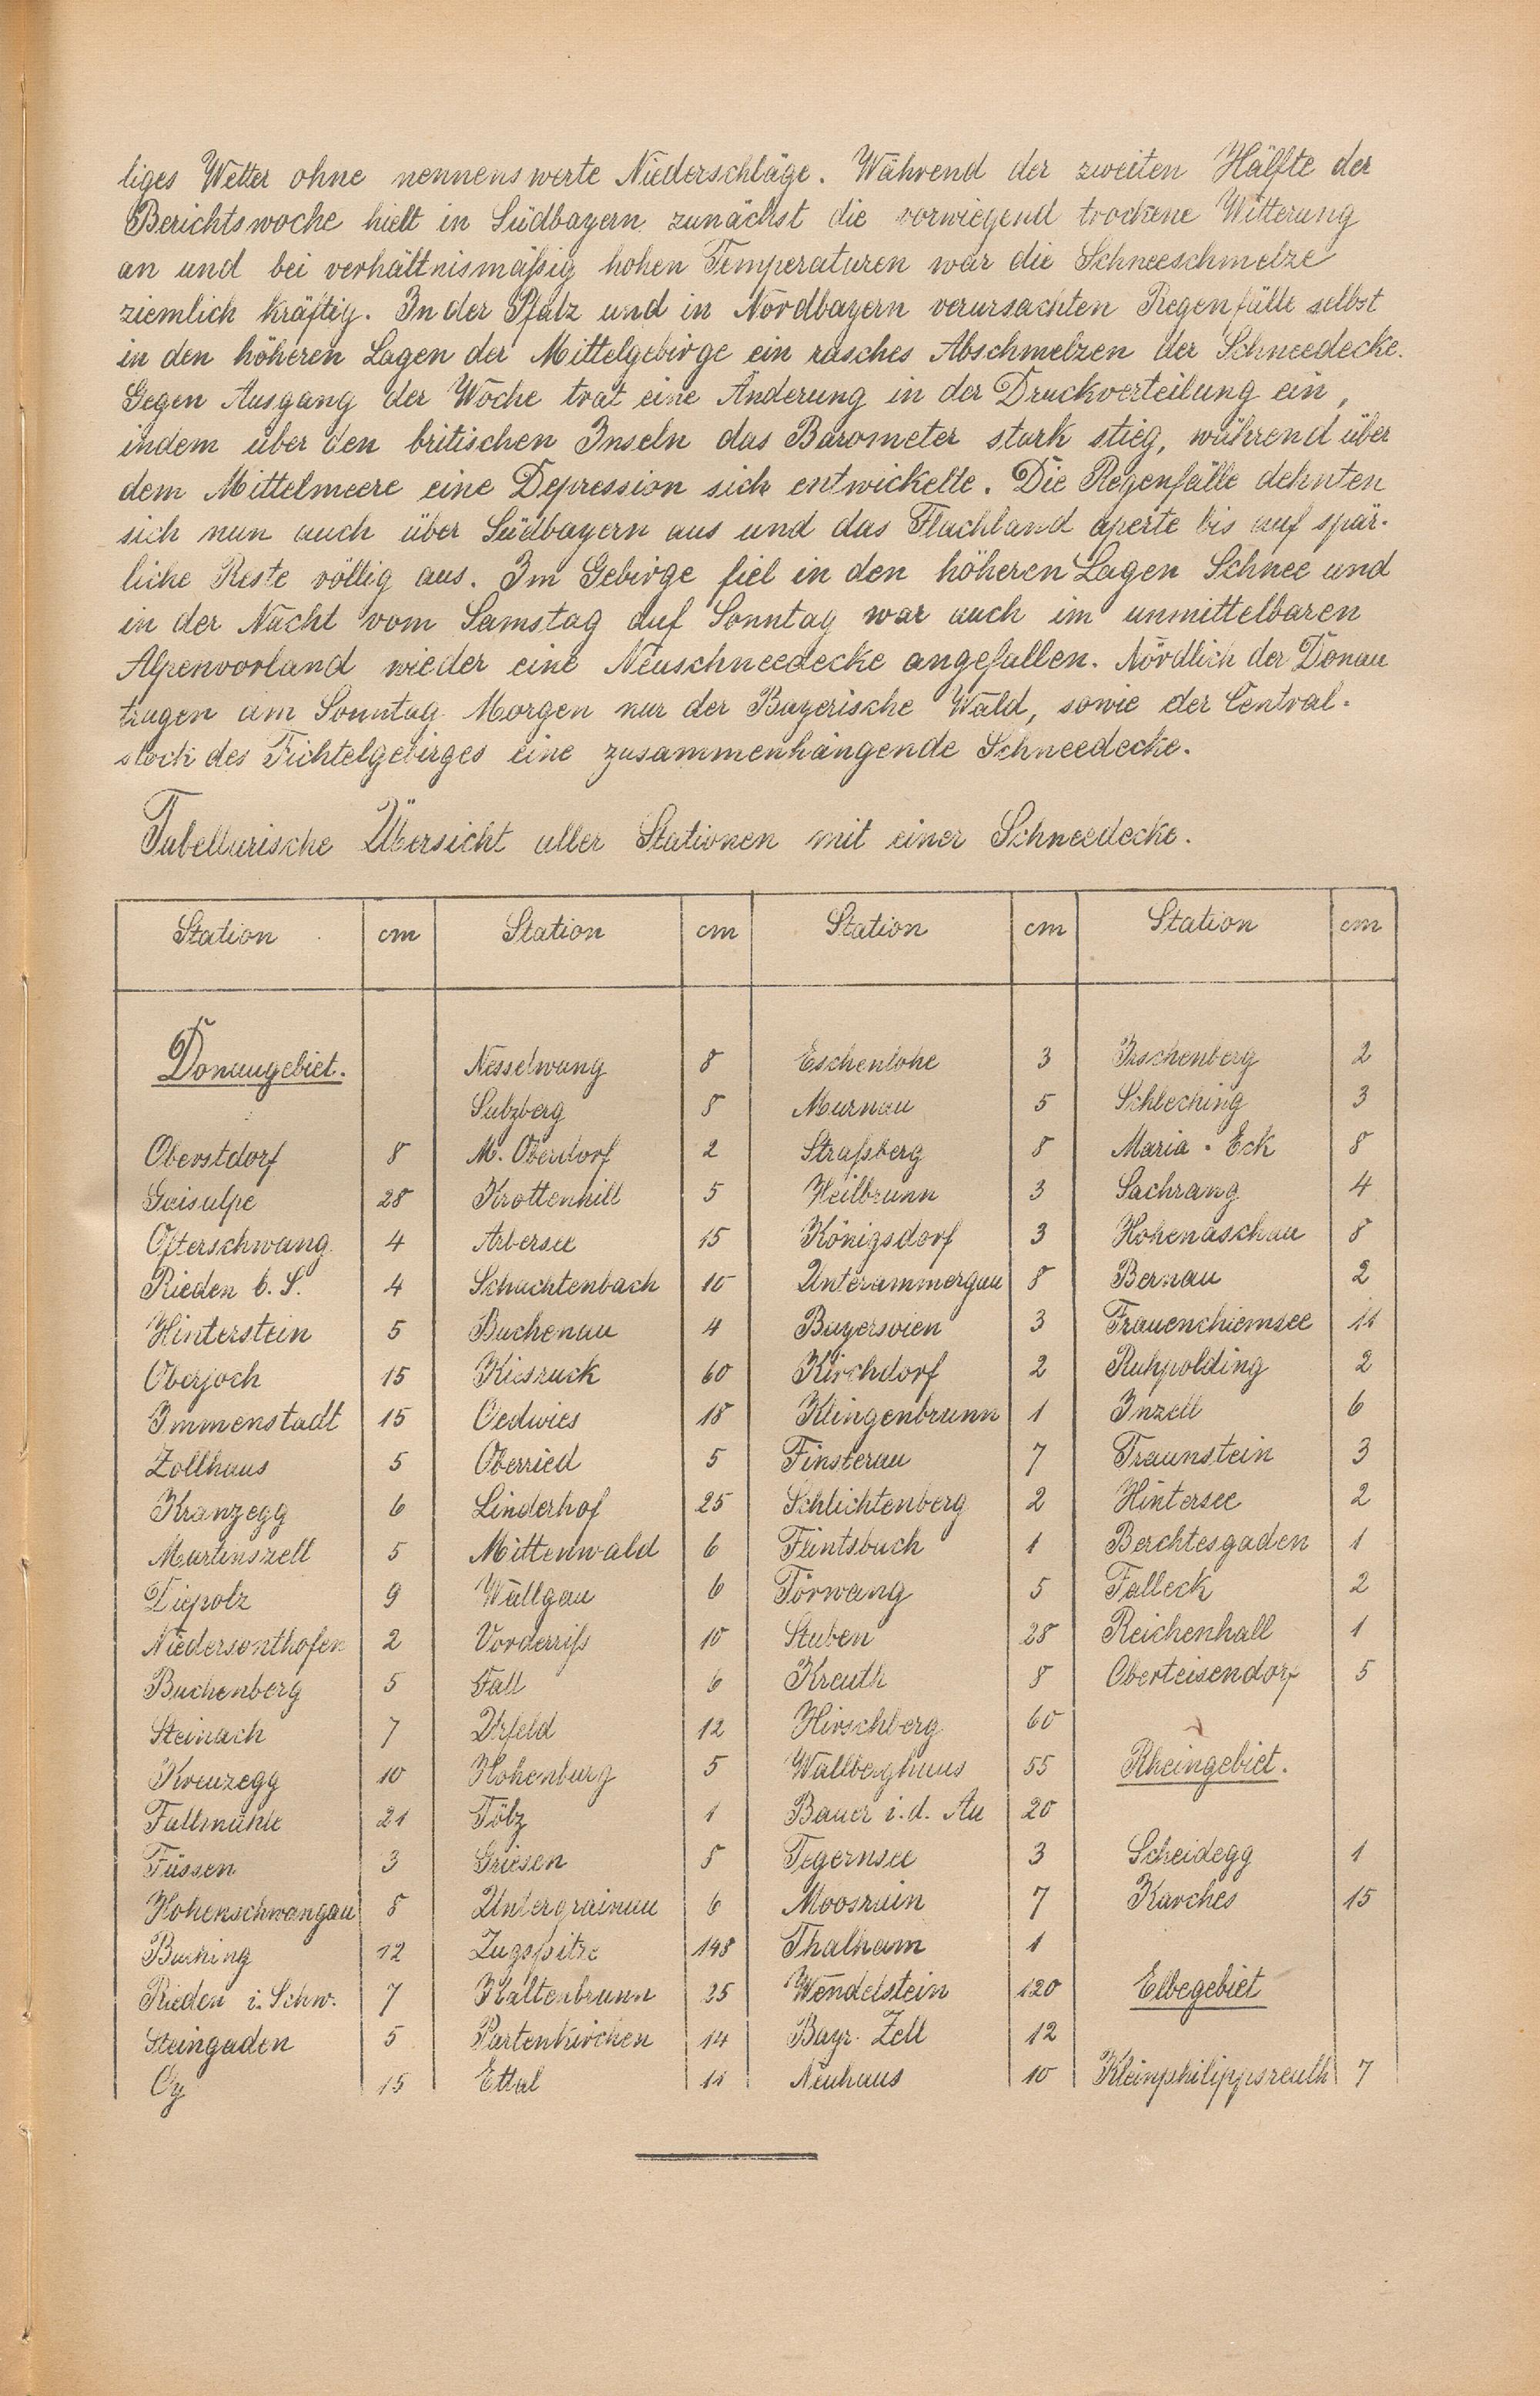 liges Wetter ohne nennenswerte Niederschläge. Während der zweiten Hälfte der
Berichtswoche hielt in Südbayern zunächst die vorwiegend trockene Witterung
an und bei verhältnismäßig hohen Temperaturen war die Schneeschmelze
ziemlich kräftig. In der Pfalz und in Nordbayern verursachten Regenfälle selbst
in den höheren Lagen der Mittelgebirge ein rasches Abschmelzen der Schneedecke.
Gegen Ausgang der Woche trat eine Änderung in der Druckverteilung ein,
indem über den britischen Inseln das Barometer stark stieg, während über
dem Mittelmeere eine Depression sich entwickelte. Die Regenfälle dehnten
sich nun auch über Südbayern aus und das Flachland aperte bis auf spär-
liche Reste völlig aus. Im Gebirge fiel in den höheren Lagen Schnee und
in der Nacht vom Samstag auf Sonntag war auch im unmittelbaren
Alpenvorland wieder eine Neuschneedecke angefallen. Nördlich der Donau
trugen am Sonntag Morgen nur der Bayerische Wald, sowie der Central-
stock des Fichtelgebirges eine zusammenhängende Schneedecke.
Tabellarische Übersicht aller Stationen mit einer Schneedecke.
Station cm Station cm Station cm Station cm
Donaugebiet. Nesselwang 8 Eschenlohe 3 Irschenberg 2
Sulzberg 8 Murnau 5 Schleching 3
Oberstdorf 8 M. Oberdorf 2 Straßberg 8 Maria-Eck 8
Gaisalpe 28 Krottenhill 5 Heilbrunn 3 Sachrang 4
Ofterschwang 4 Arbersee 15 Königsdorf 3 Hohenaschau 8
Rieden b. S. 4 Schachtenbach 10 Unterammergau 8 Bernau 2
Hinterstein 5 Buchenau 4 Bayersoien 3 Frauenchiemsee 11
Oberjoch 15 Kiesruck 60 Kirchdorf 2 Ruhpolding 2
Immenstadt 15 Oedwies 18 Klingenbrunn 1 Inzell 6
Zollhaus 5 Oberried 5 Finsterau 7 Traunstein 3
Kranzegg 6 Linderhof 25 Schlichtenberg 2 Hintersee 2
Martinszell 5 Mittenwald 6 Flintsbach 1 Berchtesgaden 1
Diepolz 9 Wallgau 6 Törwang 5 Falleck 2
Niedersonthofen 2 Vorderriß 10 Stuben 28 Reichenhall 1
Buchenberg 5 Fall 6 Kreuth 8 Oberteisendorf 5
Steinach 7 Urfeld 12 Hirschberg 60
Kreuzegg 10 Hohenburg 5 Wallberghaus 55 Rheingebiet.
Fallmühle 21 Tölz 1 Bauer i. d. Au 20
Füssen 3 Griesen 5 Tegernsee 3 Scheidegg 1
Hohenschwangau 8 Untergrainau 6 Moosrain 7 Karches 15
Buching 12 Zugspitze 148 Thalham 1
Rieden i. Schw. 7 Kaltenbrunn 25 Wendelstein 120 Elbegebiet
Steingaden 5 Partenkirchen 14 Bayr. Zell 12
Oy 15 Ettal 11 Neuhaus 10 Kleinphilippsreuth 7